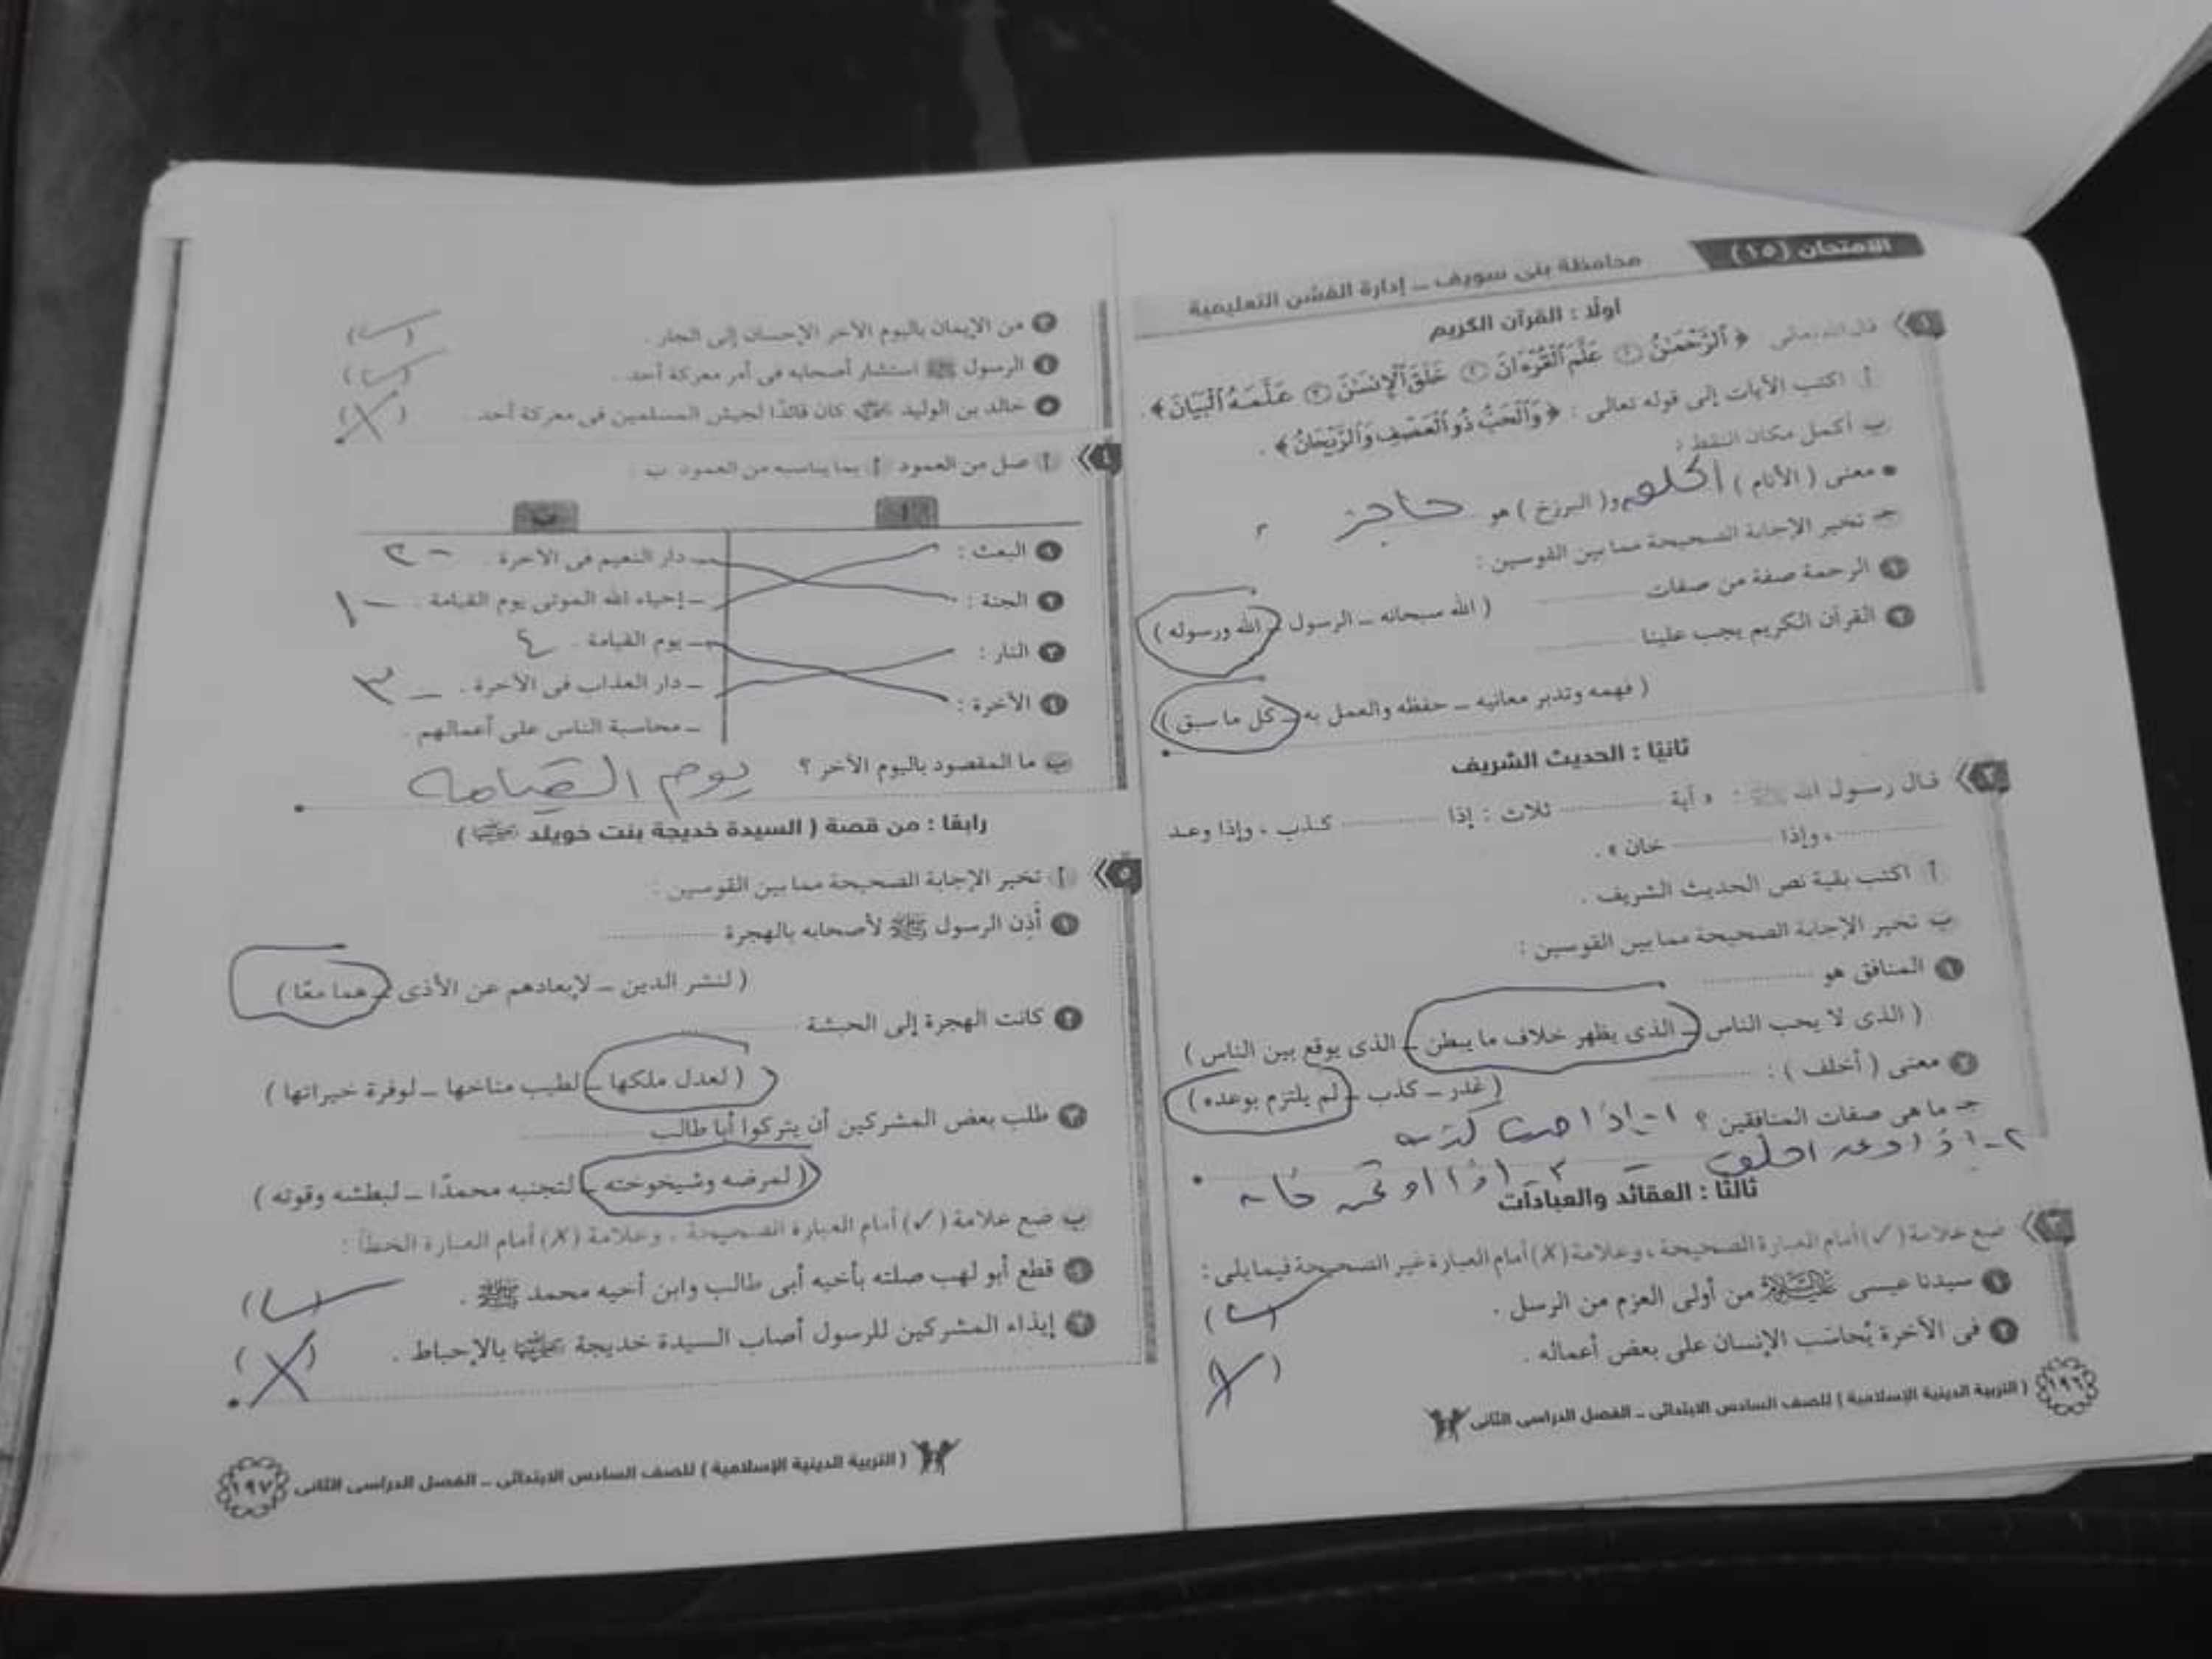 الامتحان (١٥) محافظة بنى سويف ــ إدارة الفشن التعليمية
أولًا : القرآن الكريم
١ قال الله تعالى : ﴿ ٱلرَّحْمَـٰنُ ١ عَلَّمَ ٱلْقُرْءَانَ ٢ خَلَقَ ٱلْإِنسَـٰنَ ٣ عَلَّمَهُ ٱلْبَيَانَ ﴾ .
أ اكتب الآيات إلى قوله تعالى : ﴿ وَٱلْحَبُّ ذُو ٱلْعَصْفِ وَٱلرَّيْحَانُ ﴾ .
ب أكمل مكان النقط :
• معنى ( الأنام ) الخلق و( البرزخ ) هو حاجز
جـ تخير الإجابة الصحيحة مما بين القوسين :
١ الرحمة صفة من صفات ..........
( الله سبحانه ــ الرسول ــ الله ورسوله )
٢ القرآن الكريم يجب علينا ..........
( فهمه وتدبر معانيه ــ حفظه والعمل به ــ كل ما سبق )
ثانيًا : الحديث الشريف
٢ قال رسول الله ﷺ : « آية .......... ثلاث : إذا .......... كذب ، وإذا وعد
.......... ، وإذا .......... خان » .
أ اكتب بقية نص الحديث الشريف .
ب تخير الإجابة الصحيحة مما بين القوسين :
١ المنافق هو ..........
( الذى لا يحب الناس ــ الذى يظهر خلاف ما يبطن ــ الذى يوقع بين الناس )
٢ معنى ( أخلف ) : .......... ( غدر ــ كذب ــ لم يلتزم بوعده )
جـ ما هى صفات المنافقين ؟ ١ - إذا حدث كذب
٢ - اذا وعد اخلف ٣ - اذا اؤتمن خان
ثالثًا : العقائد والعبادات
٣ ضع علامة (✓) أمام العبارة الصحيحة ، وعلامة (✗) أمام العبارة غير الصحيحة فيما يلى :
١ سيدنا عيسى عليه السلام من أولى العزم من الرسل . (✓)
٢ فى الآخرة يُحاسَب الإنسان على بعض أعماله . (✗)
١٩٦ ( التربية الدينية الإسلامية ) للصف السادس الابتدائى ــ الفصل الدراسى الثانى
٣ من الإيمان باليوم الآخر الإحسان إلى الجار . (✓)
٤ الرسول ﷺ استشار أصحابه فى أمر معركة أحد . (✓)
٥ خالد بن الوليد كان قائدًا لجيش المسلمين فى معركة أحد . (✗)
٤ أ صل من العمود أ بما يناسبه من العمود ب :
أ ب
١ البعث : ــ دار النعيم فى الآخرة . - ٢
٢ الجنة : ــ إحياء الله الموتى يوم القيامة . - ١
٣ النار : ــ يوم القيامة . ٤
٤ الآخرة : ــ دار العذاب فى الآخرة . - ٣
ــ محاسبة الناس على أعمالهم .
ب ما المقصود باليوم الآخر ؟ يوم القيامه
رابعًا : من قصة ( السيدة خديجة بنت خويلد )
٥ أ تخير الإجابة الصحيحة مما بين القوسين :
١ أَذِن الرسول ﷺ لأصحابه بالهجرة ..........
( لنشر الدين ــ لإبعادهم عن الأذى ــ هما معًا )
٢ كانت الهجرة إلى الحبشة ..........
( لعدل ملكها ــ لطيب مناخها ــ لوفرة خيراتها )
٣ طلب بعض المشركين أن يتركوا أبا طالب ..........
( لمرضه وشيخوخته ــ لتجنبه محمدًا ــ لبطشه وقوته )
ب ضع علامة (✓) أمام العبارة الصحيحة ، وعلامة (✗) أمام العبارة الخطأ :
١ قطع أبو لهب صلته بأخيه أبى طالب وابن أخيه محمد ﷺ . (✓)
٢ إيذاء المشركين للرسول أصاب السيدة خديجة بالإحباط . (✗)
( التربية الدينية الإسلامية ) للصف السادس الابتدائى ــ الفصل الدراسى الثانى ١٩٧